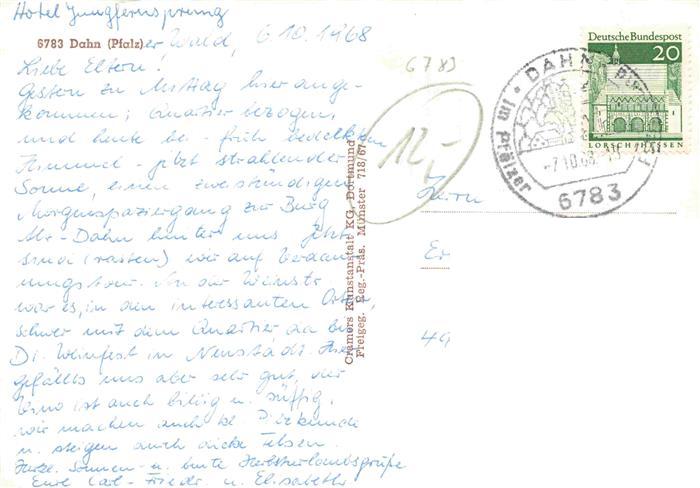 Hotel Jungfernsprung
6783 Dahn (Pfalz)er Wald, 6.10.1968
Liebe Eltern!
Gestern zu Mittag hier ange-
kommen; Quartier bezogen,
und heute bei früh bedecktem
Himmel - jetzt strahlender
Sonne, einen zweistündigen
Morgenspaziergang zur Burg
Alt-Dahn hinter uns. Jetzt
sind (rasten) wir auf Verdau-
ungstour. An der Weinstr.
war es, in den interessanten Orten,
schwer mit dem Quartier, da bes.
Dt. Weinfest in Neustadt. Hier
gefällts uns aber sehr gut, der
Vino ist auch billig u. süffig,
wir machen auch
u. steigen auch dicke Felsen.
Herzl. Sonnen- u. bunte Herbsturlaubsgrüße
Eure Carl-Friedr. u. Elisabeth
Cramers Kunstanstalt KG, Dortmund
Freigeg. Reg.-Präs. Münster 718/67
6783
12,-
Deutsche Bundespost
20
LORSCH/HESSEN
DAHN
im Pfälzer
-7.10.68
6783
Herrn
Er
49